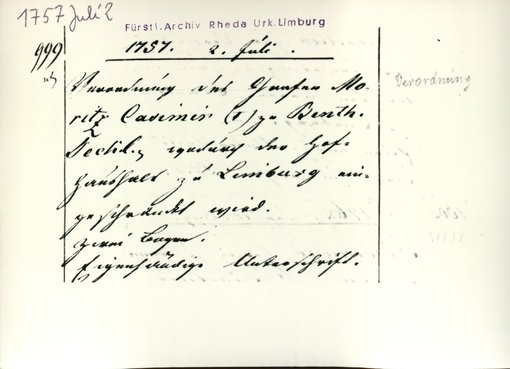 1757 Juli 2
Fürstl. Archiv Rheda Urk. Limburg
999
1757. 2. Juli.
Verordnung des Grafen Mo-
ritz Casimir (I) zu Benth.
Tecklb., wodurch der Hof-
haushalt zu Limburg ein-
geschränkt wird.
zwei Bogen.
Eigenhändige Unterschrift.
Verordnung